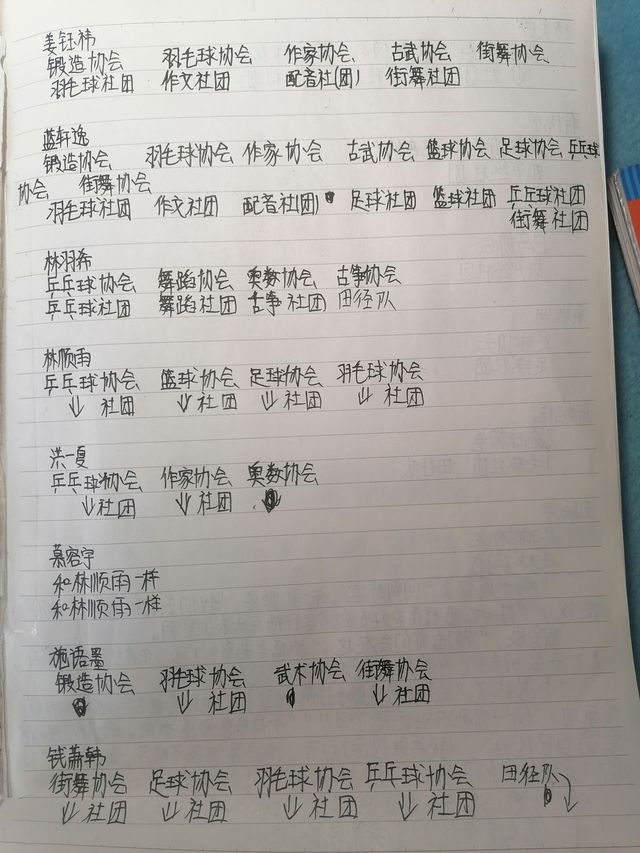 姜钰祎
锻造协会 羽毛球协会 作家协会 古武协会 街舞协会
羽毛球社团 作文社团 配音社(团) 街舞社团
蓝轩逸
锻造协会 羽毛球协会 作家协会 古武协会 篮球协会 足球协会 乒乓球
协会 街舞协会
羽毛球社团 作文社团 配音社(团) 足球社团 篮球社团 乒乓球社团
街舞社团
林羽希
乒乓球协会 舞蹈协会 奥数协会 古筝协会
乒乓球社团 舞蹈社团 古筝社团 田径队
林顺雨
乒乓球协会 篮球协会 足球协会 羽毛球协会
↓ 社团 ↓ 社团 ↓ 社团 ↓ 社团
洪一夏
乒乓球协会 作家协会 奥数协会
↓ 社团 ↓ 社团
慕容宇
和林顺雨一样
和林顺雨一样
施语墨
锻造协会 羽毛球协会 武术协会 街舞协会
↓ 社团 ↓ 社团
钱萧韩
街舞协会 足球协会 羽毛球协会 乒乓球协会 田径队
↓ 社团 ↓ 社团 ↓ 社团 ↓ 社团 ↓